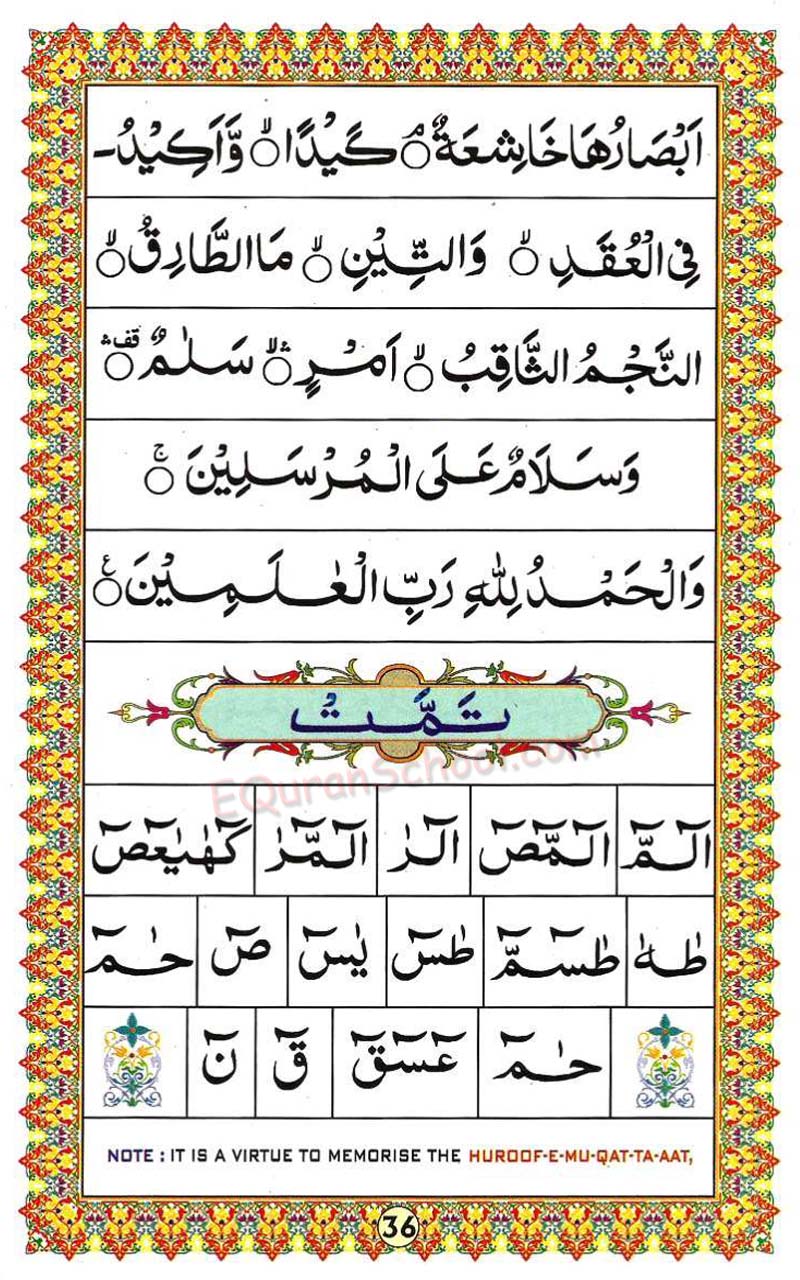 اَبْصَارُهَا خَاشِعَةٌ ۘ۝ كَيْدًا ۙ۝ وَّاَكِيْدُ -
فِى الْعُقَدِ ۙ۝ وَالتِّيْنِ ۙ۝ مَا الطَّارِقُ ۙ۝
النَّجْمُ الثَّاقِبُ ۙ۝ اَمْرٍ ۛۙ۝ سَلٰمٌ ۛقف۝
وَسَلَامٌ عَلَى الْمُرْسَلِيْنَ ۚ۝
وَالْحَمْدُ لِلّٰهِ رَبِّ الْعٰلَمِيْنَ ۝ع
تَمَّتْ
EQuranSchool.com
الٓمّٓ الٓمّٓصٓ الٓرٰ الٓمّٓرٰ كٓهٰيٰعٓصٓ
طٰهٰ طٰسٓمّٓ طٰسٓ يٰسٓ صٓ حٰمٓ
حٰمٓ عٓسٓقٓ قٓ نٓ
NOTE : IT IS A VIRTUE TO MEMORISE THE HUROOF-E-MU-QAT-TA-AAT,
36